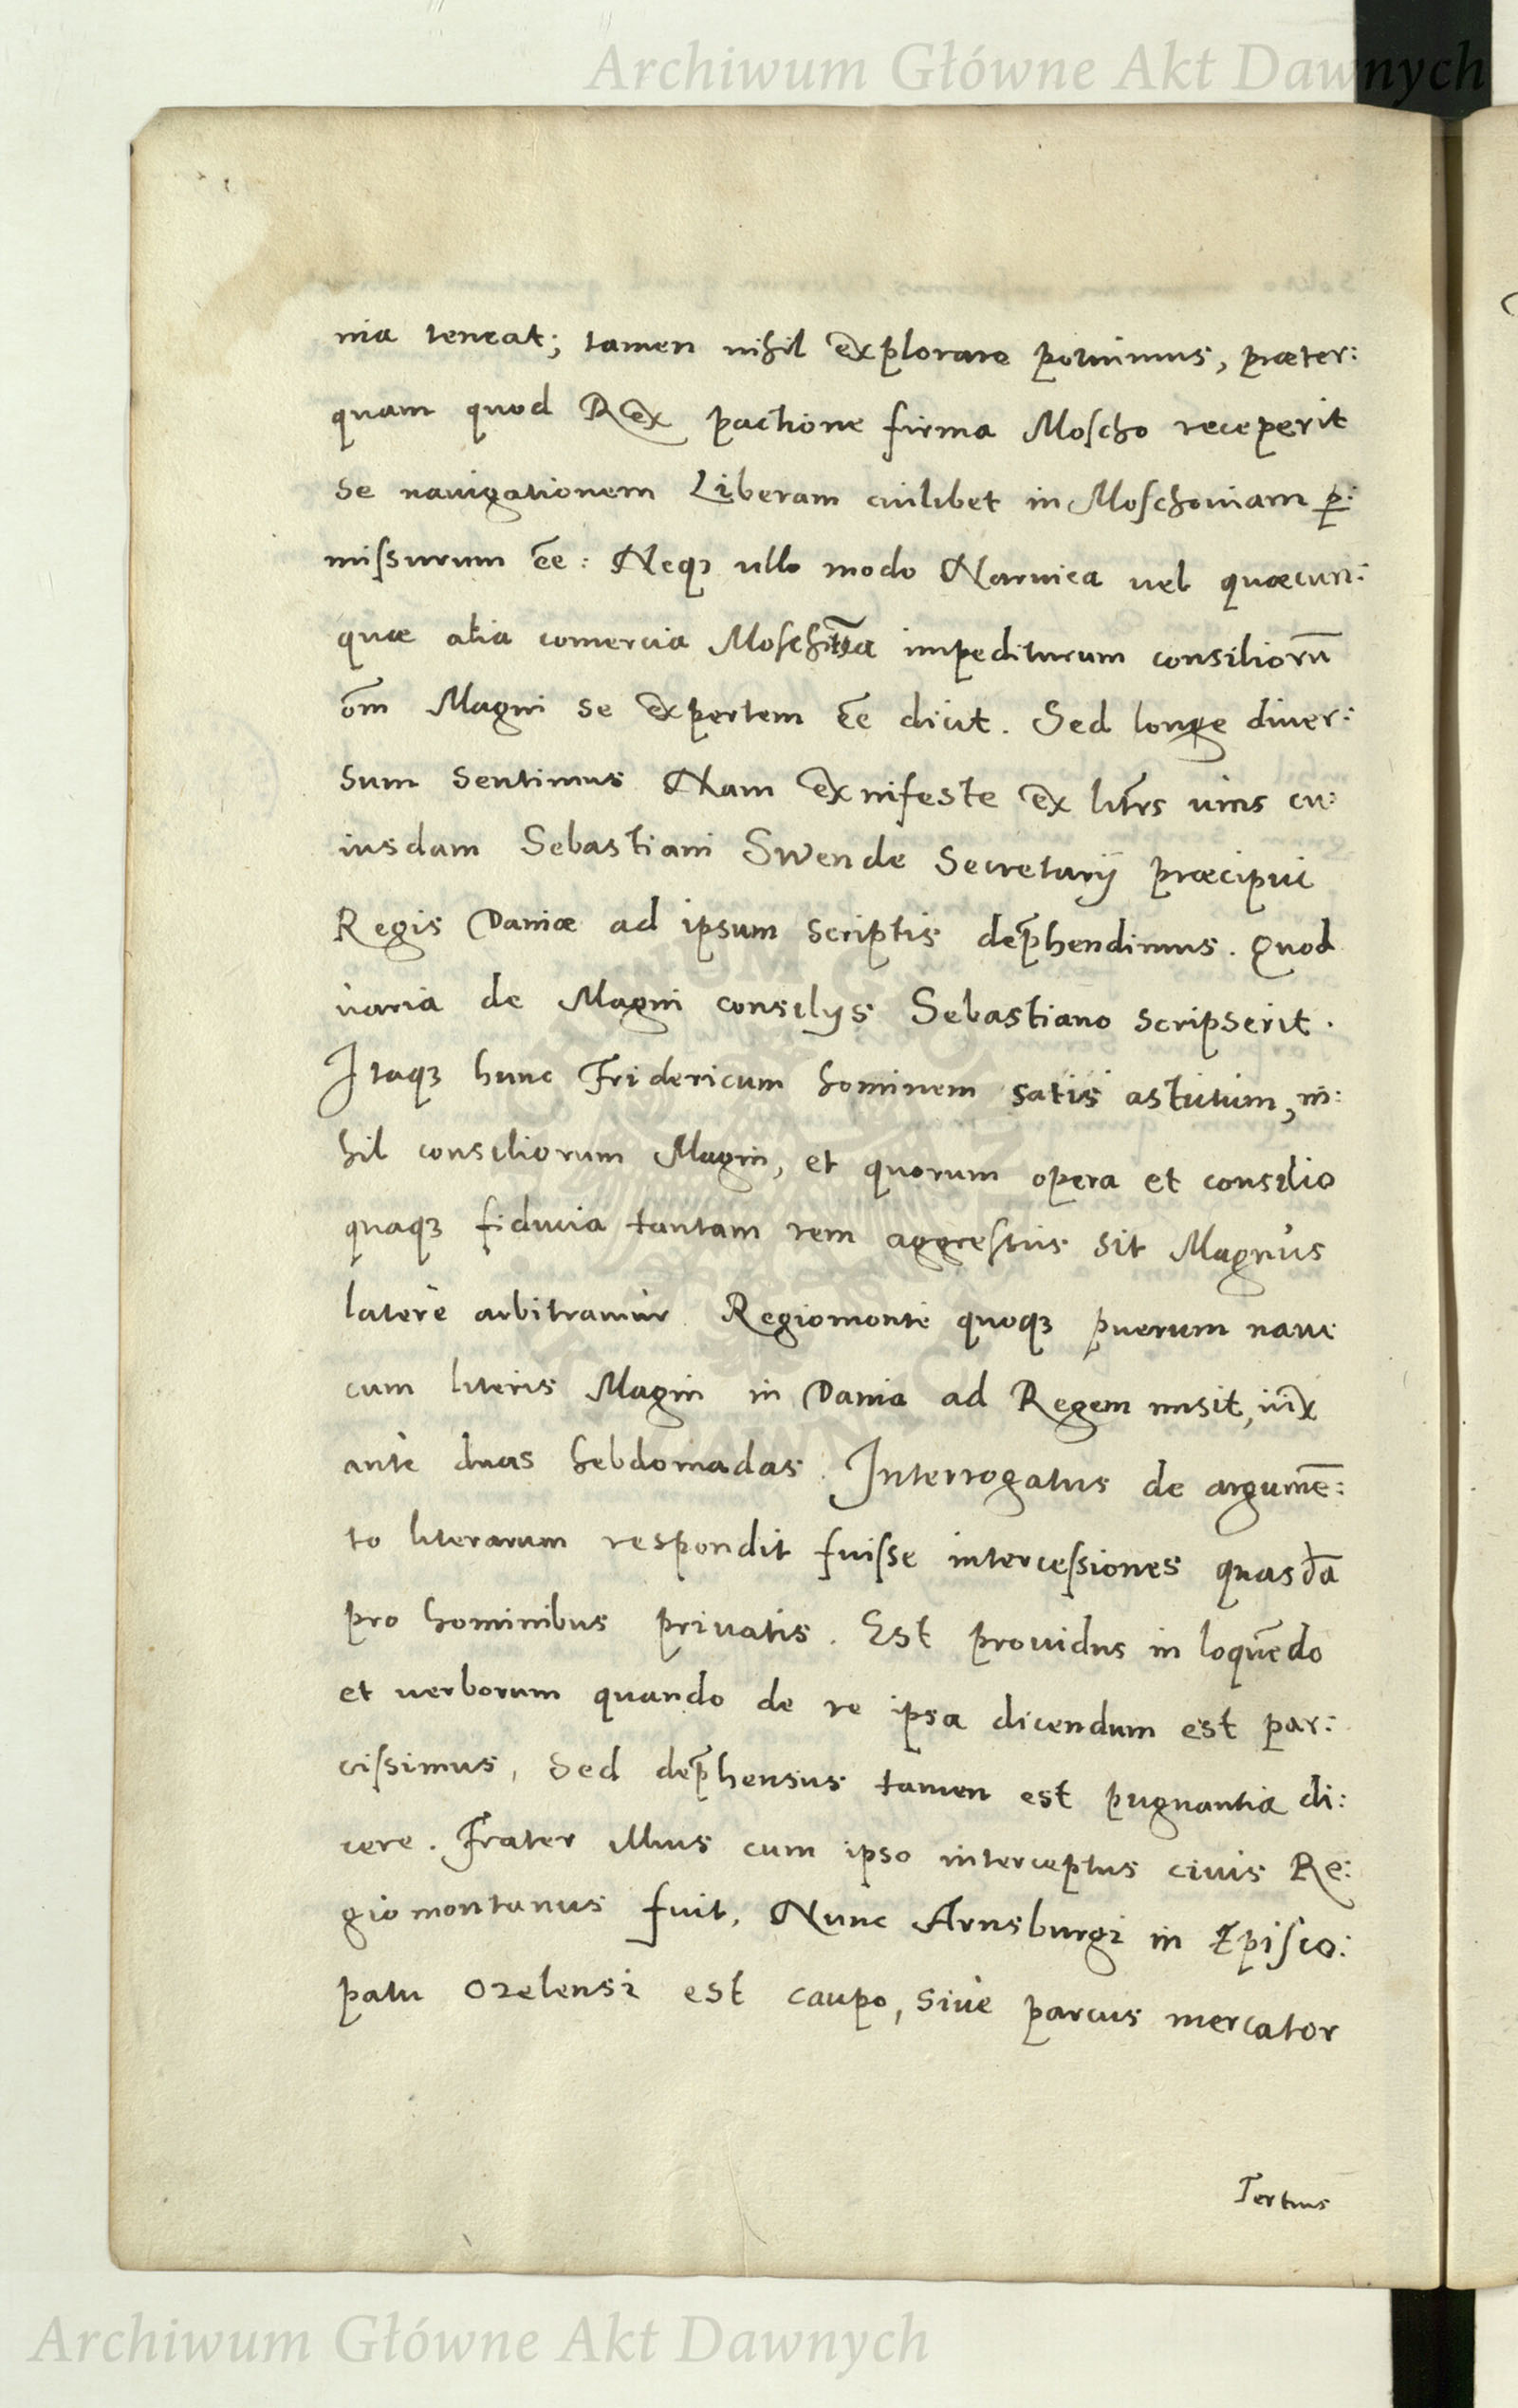 Archiwum Główne Akt Dawnych
nia teneat; tamen nihil explorare potuimus, præter:
quam quod Rex pactione firma Moscho receperit
se nauigationem Liberam cuilibet in Moschouiam p̱:
missurum ēe: Neqꝫ ullo modo Naruica uel quæcun:
quæ alia comercia impediturum consiliorū
om̄ Magni se expertem ēe dicit. Sed longe diuer:
sum sentimus Nam ex nifeste ex litr̄is cu:
iusdam Sebastiani Swende Secretarij præcipui
Regis Daniæ ad ipsum scriptis dep̄hendimus. Quod
uaria de Magni consilijs Sebastiano scripserit.
Itaqꝫ hunc Fridericum hominem satis astutum, ni:
hil consiliorum Magni, et quorum opera et consilio
quaqꝫ fiducia tantam rem aggressus sit Magnus
latere arbitramur Regiomonte quoqꝫ puerum naue
cum literis Magni in Dania ad Regem misit, uix
ante duas hebdomadas. Interrogatus de argumē:
to literarum respondit fuisse intercessiones quasdā
pro hominibus priuatis. Est prouidus in loquēdo
et uerborum quando de re ipsa dicendum est par:
cissimus, Sed dep̄hensus tamen est pugnantia di:
cere. Frater illius cum ipso interceptus ciuis Re:
giomontanus fuit, Nunc Arnsburgi in Episco:
patu Ozelensi est caupo, siue parcus mercator
Tertius
Archiwum Główne Akt Dawnych